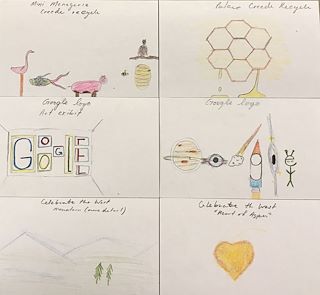 Mini Menagerie
Creede Recycle
Creede Recycle
Google logo
Art exhibit
GOOGLE
Google logo
Celebrate the West
Mountain (more detail)
Celebrate the West
"Heart of Aspen"